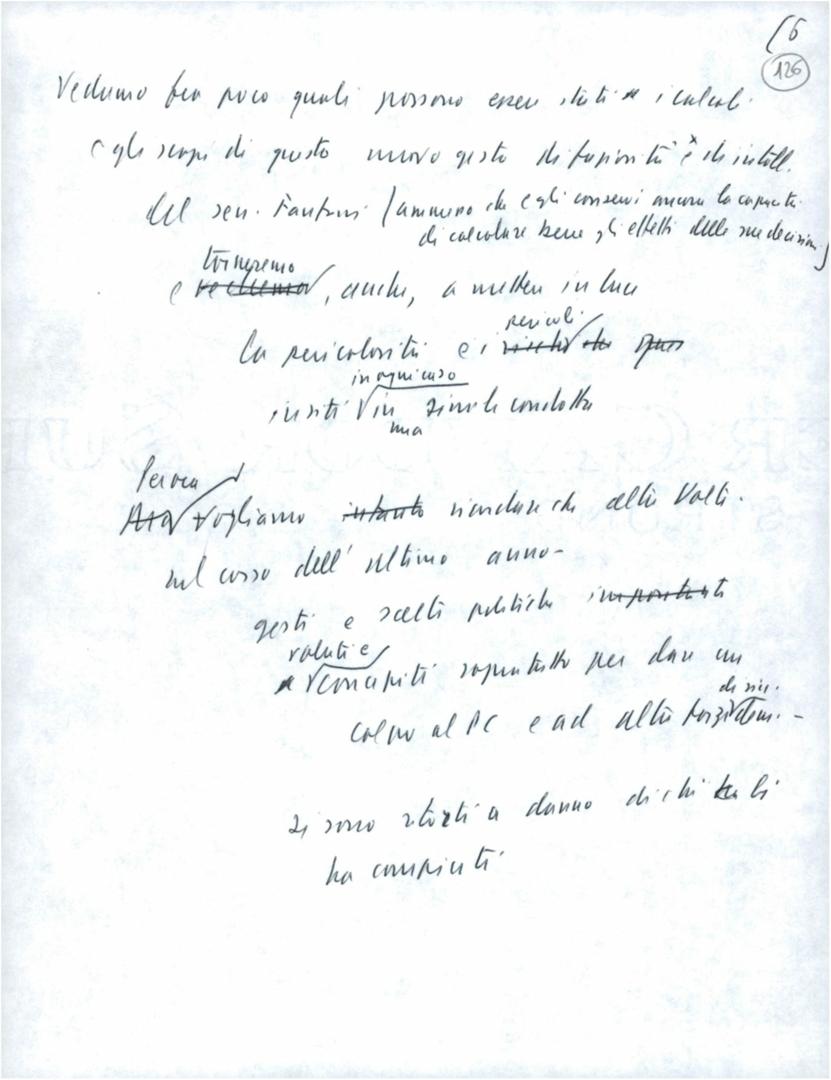 (6
126
Vedremo fra poco quali possono essere stati i calcoli
e gli scopi di questo nuovo gesto di faziosità e di intoll.
del sen. Fanfani (ammesso che egli conservi ancora la capacità
di calcolare bene gli effetti delle sue decisioni)
torneremo
e , anche, a mettere in luce
pericoli
la pericolosità e i
in ogni caso
insiti in simile condotta
una
Per ora
Ora vogliamo intanto ricordare che altre volte
nel corso dell'ultimo anno -
gesti e scelte politiche importanti
volute e
concepite soprattutto per dare un
di sin.
colpo al PC e ad altre forze dem. -
si sono ritorti a danno di chi li
ha compiuti